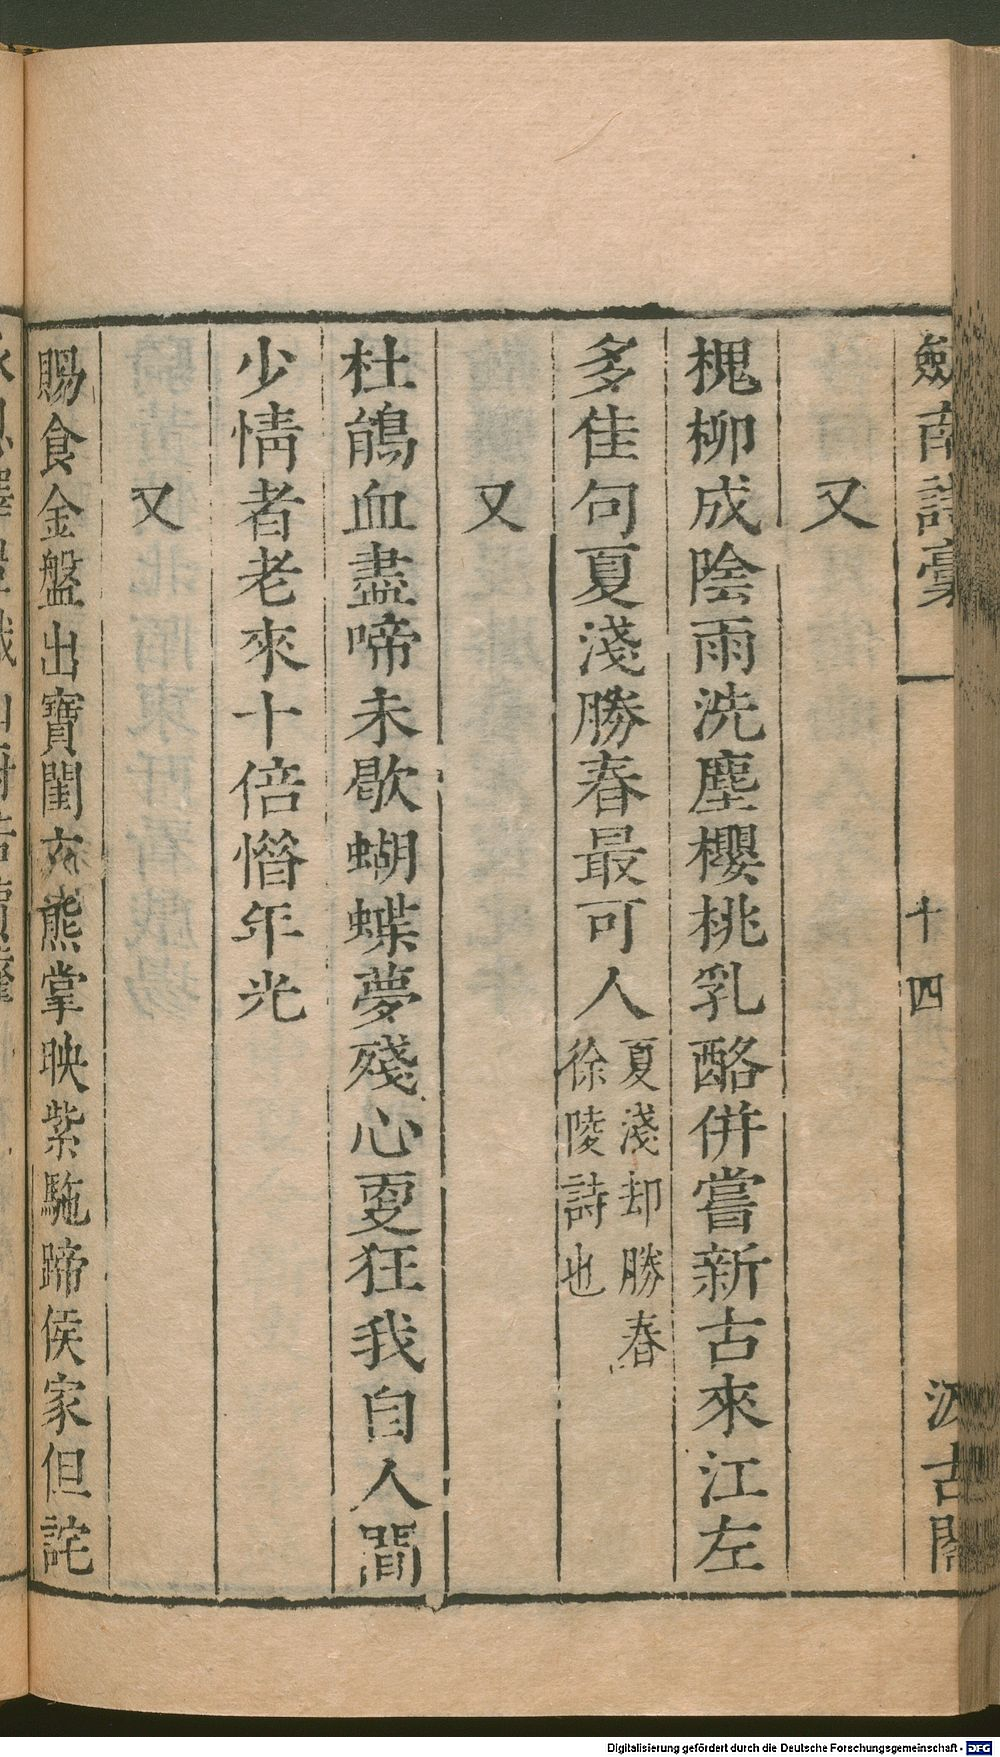 劍南詩稾 十四 汲古閣
又
槐柳成陰雨洗塵櫻桃乳酪併嘗新古來江左
多佳句夏淺勝春最可人夏淺却勝春
徐陵詩也
又
杜鵑血盡啼未歇蝴蝶夢殘心更狂我自人間
少情者老來十倍惜年光
又
賜食金盤出寶閨玄熊掌映紫駞蹄侯家但詫
Digitalisierung gefördert durch die Deutsche Forschungsgemeinschaft - DFG